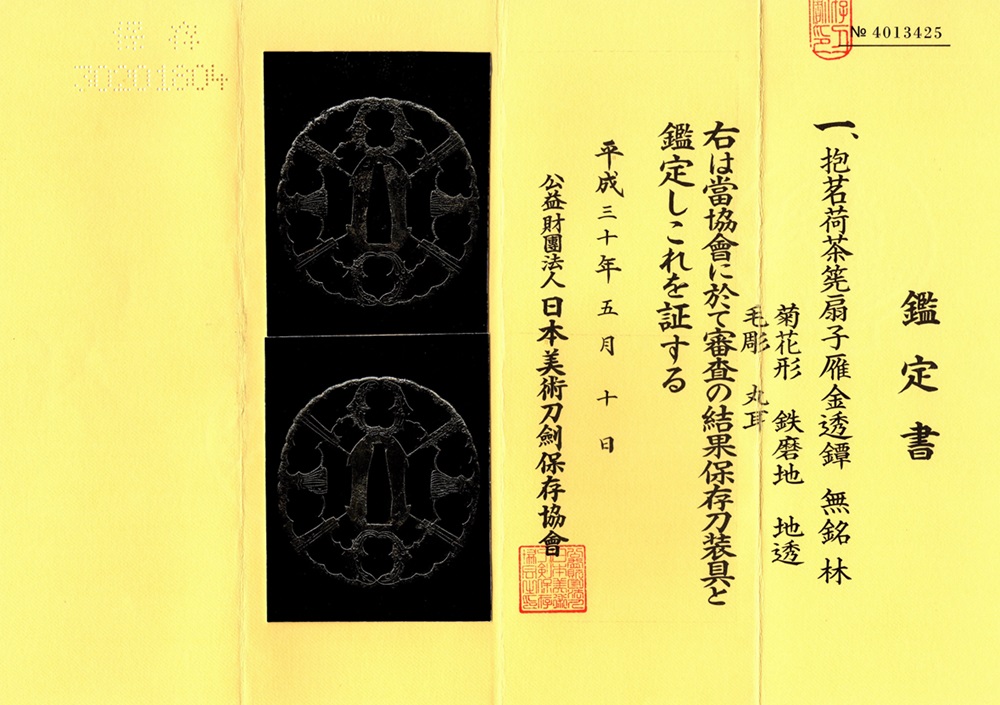 № 4013425
鑑定書
一、抱茗荷茶筅扇子雁金透鐔 無銘 林
菊花形 鉄磨地 地透
毛彫 丸耳
右は當協會に於て審査の結果保存刀装具と
鑑定しこれを証する
平成三十年五月十日
公益財團法人 日本美術刀劍保存協會
保存
30201804